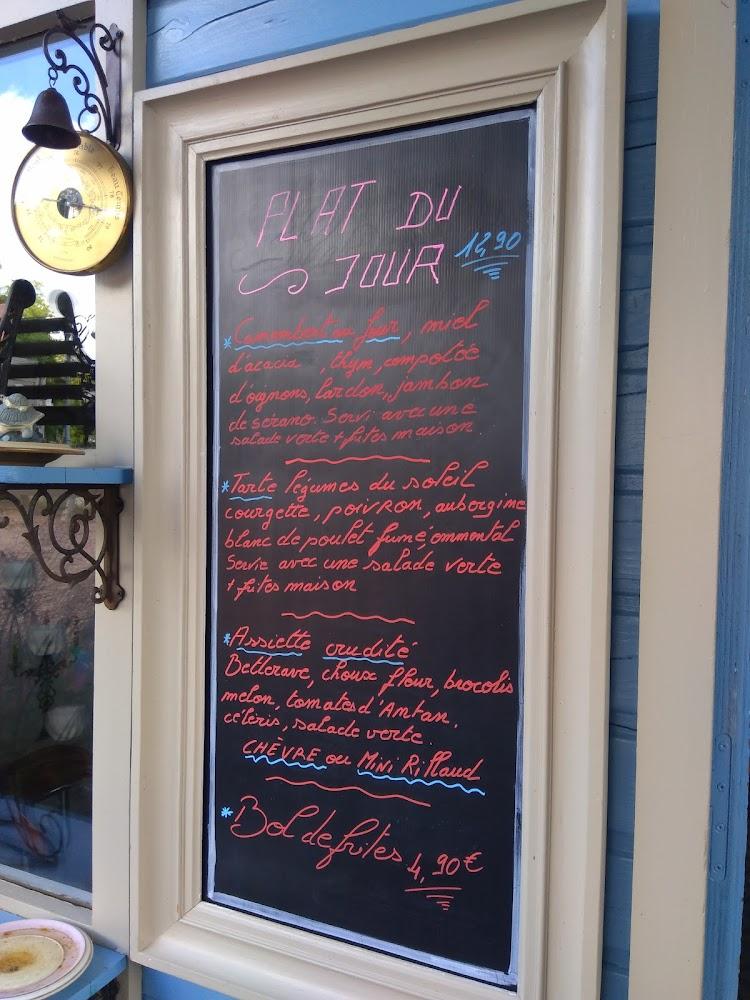 PLAT DU
JOUR 12,90
* Camembert au four, miel
d'acacia, thym, compotée
d'oignons, lardon, jambon
de sérano. Servi avec une
salade verte + frites maison
* Tarte légumes du soleil
courgette, poivron, aubergine
blanc de poulet fumé, emmental
Servie avec une salade verte
+ frites maison
* Assiette crudité
Betterave, choux fleur, brocolis
melon, tomates d'Antan,
céléris, salade verte.
CHÈVRE ou Mini Rillaud
* Bol de frites 4,90€